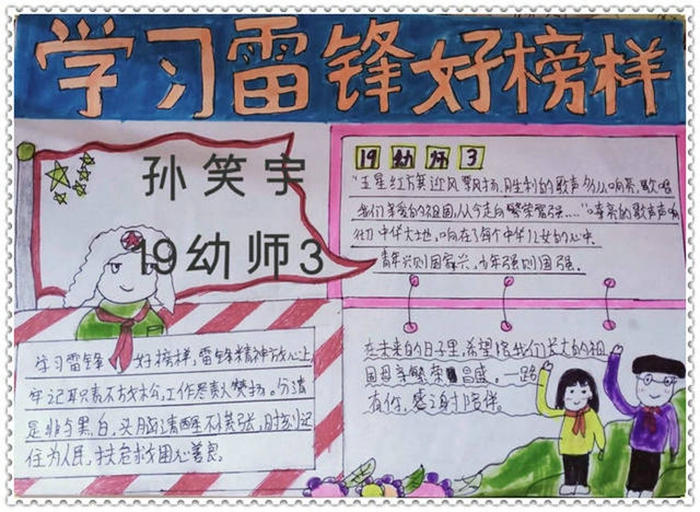 学习雷锋好榜样
孙笑宇
19幼师3
19幼师3
"五星红旗迎风飘扬,胜利的歌声多么响亮,歌唱
我们亲爱的祖国,从今走向繁荣富强……"嘹亮的歌声响
彻中华大地,响在每个中华儿女的心中.
青年兴则国家兴,少年强则国强.
学习雷锋好榜样,雷锋精神放心上,
牢记职责不放松,工作尽责人赞扬。分清
是非与黑白,头脑清醒不慌张,时刻记
住为人民,扶危救困心善良.
在未来的日子里,希望陪我们长大的祖
国母亲繁荣昌盛.一路
有你,感谢陪伴。